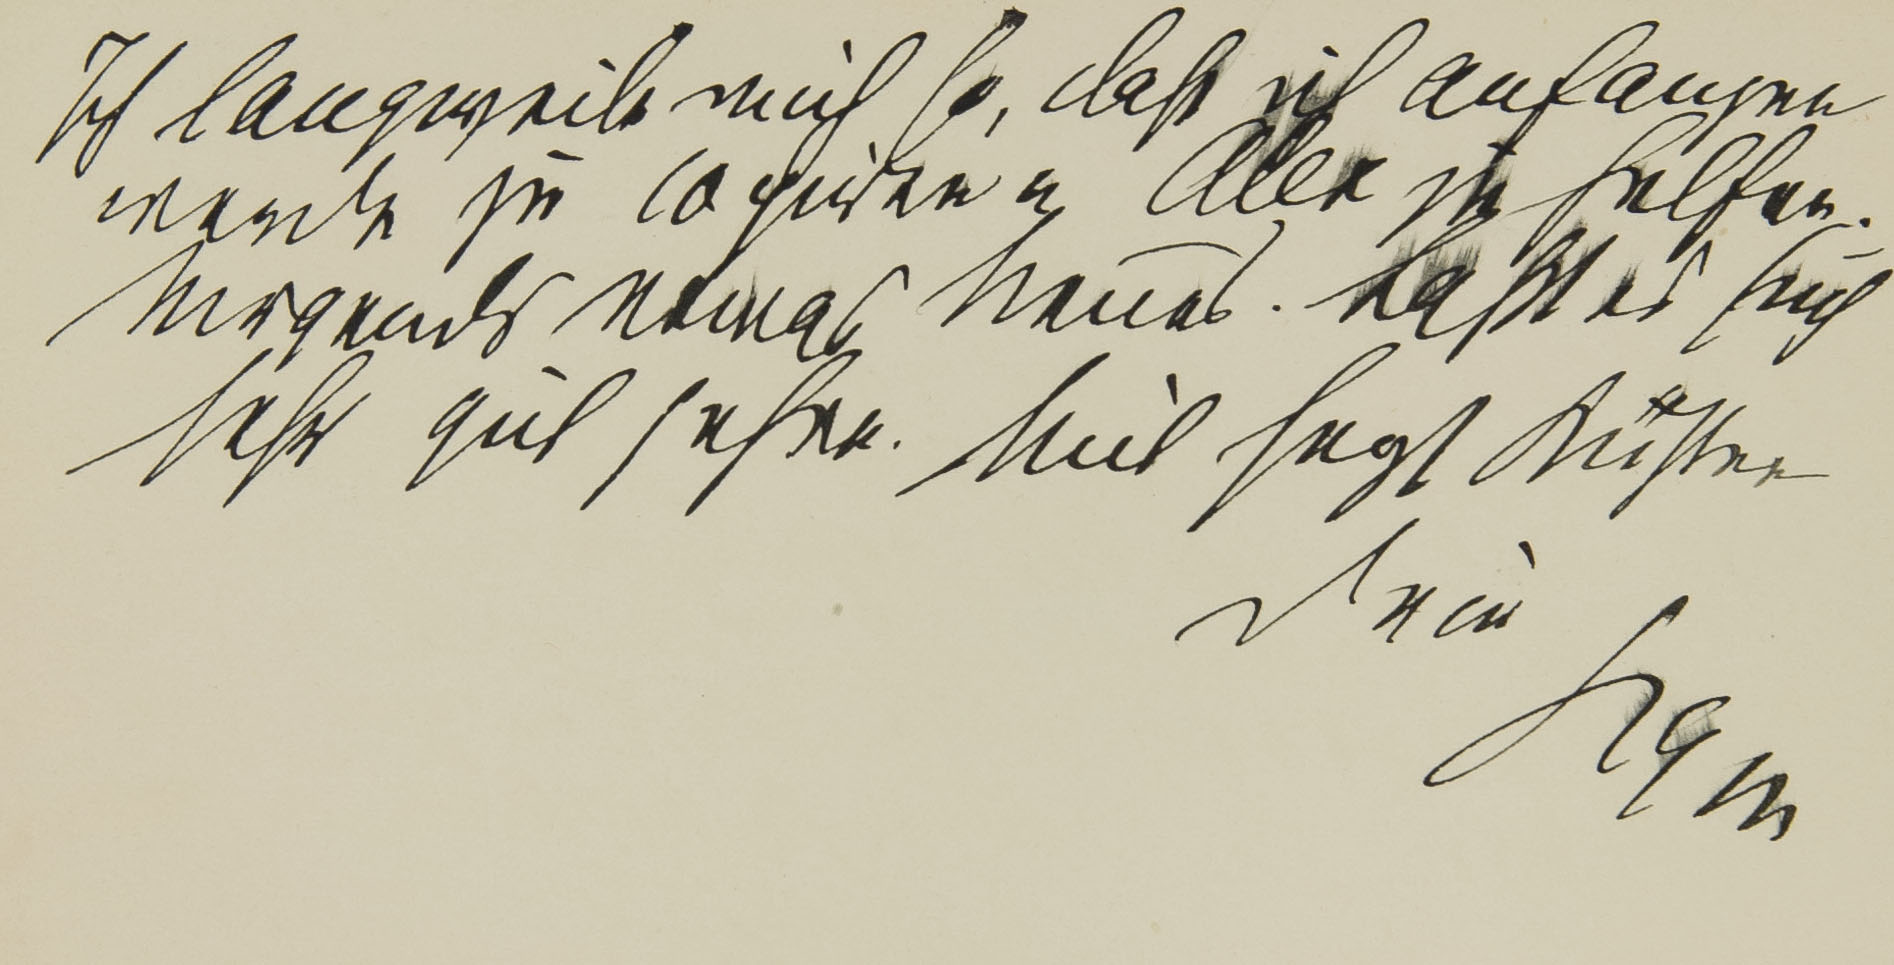 Ich langweile mich so, daß ich anfangen
werde zu copiren u Alex zu helfen.
Nirgends etwas Neues. Laßt es Euch
sehr gut gehen. Mit Hrzl Küssen
Dein